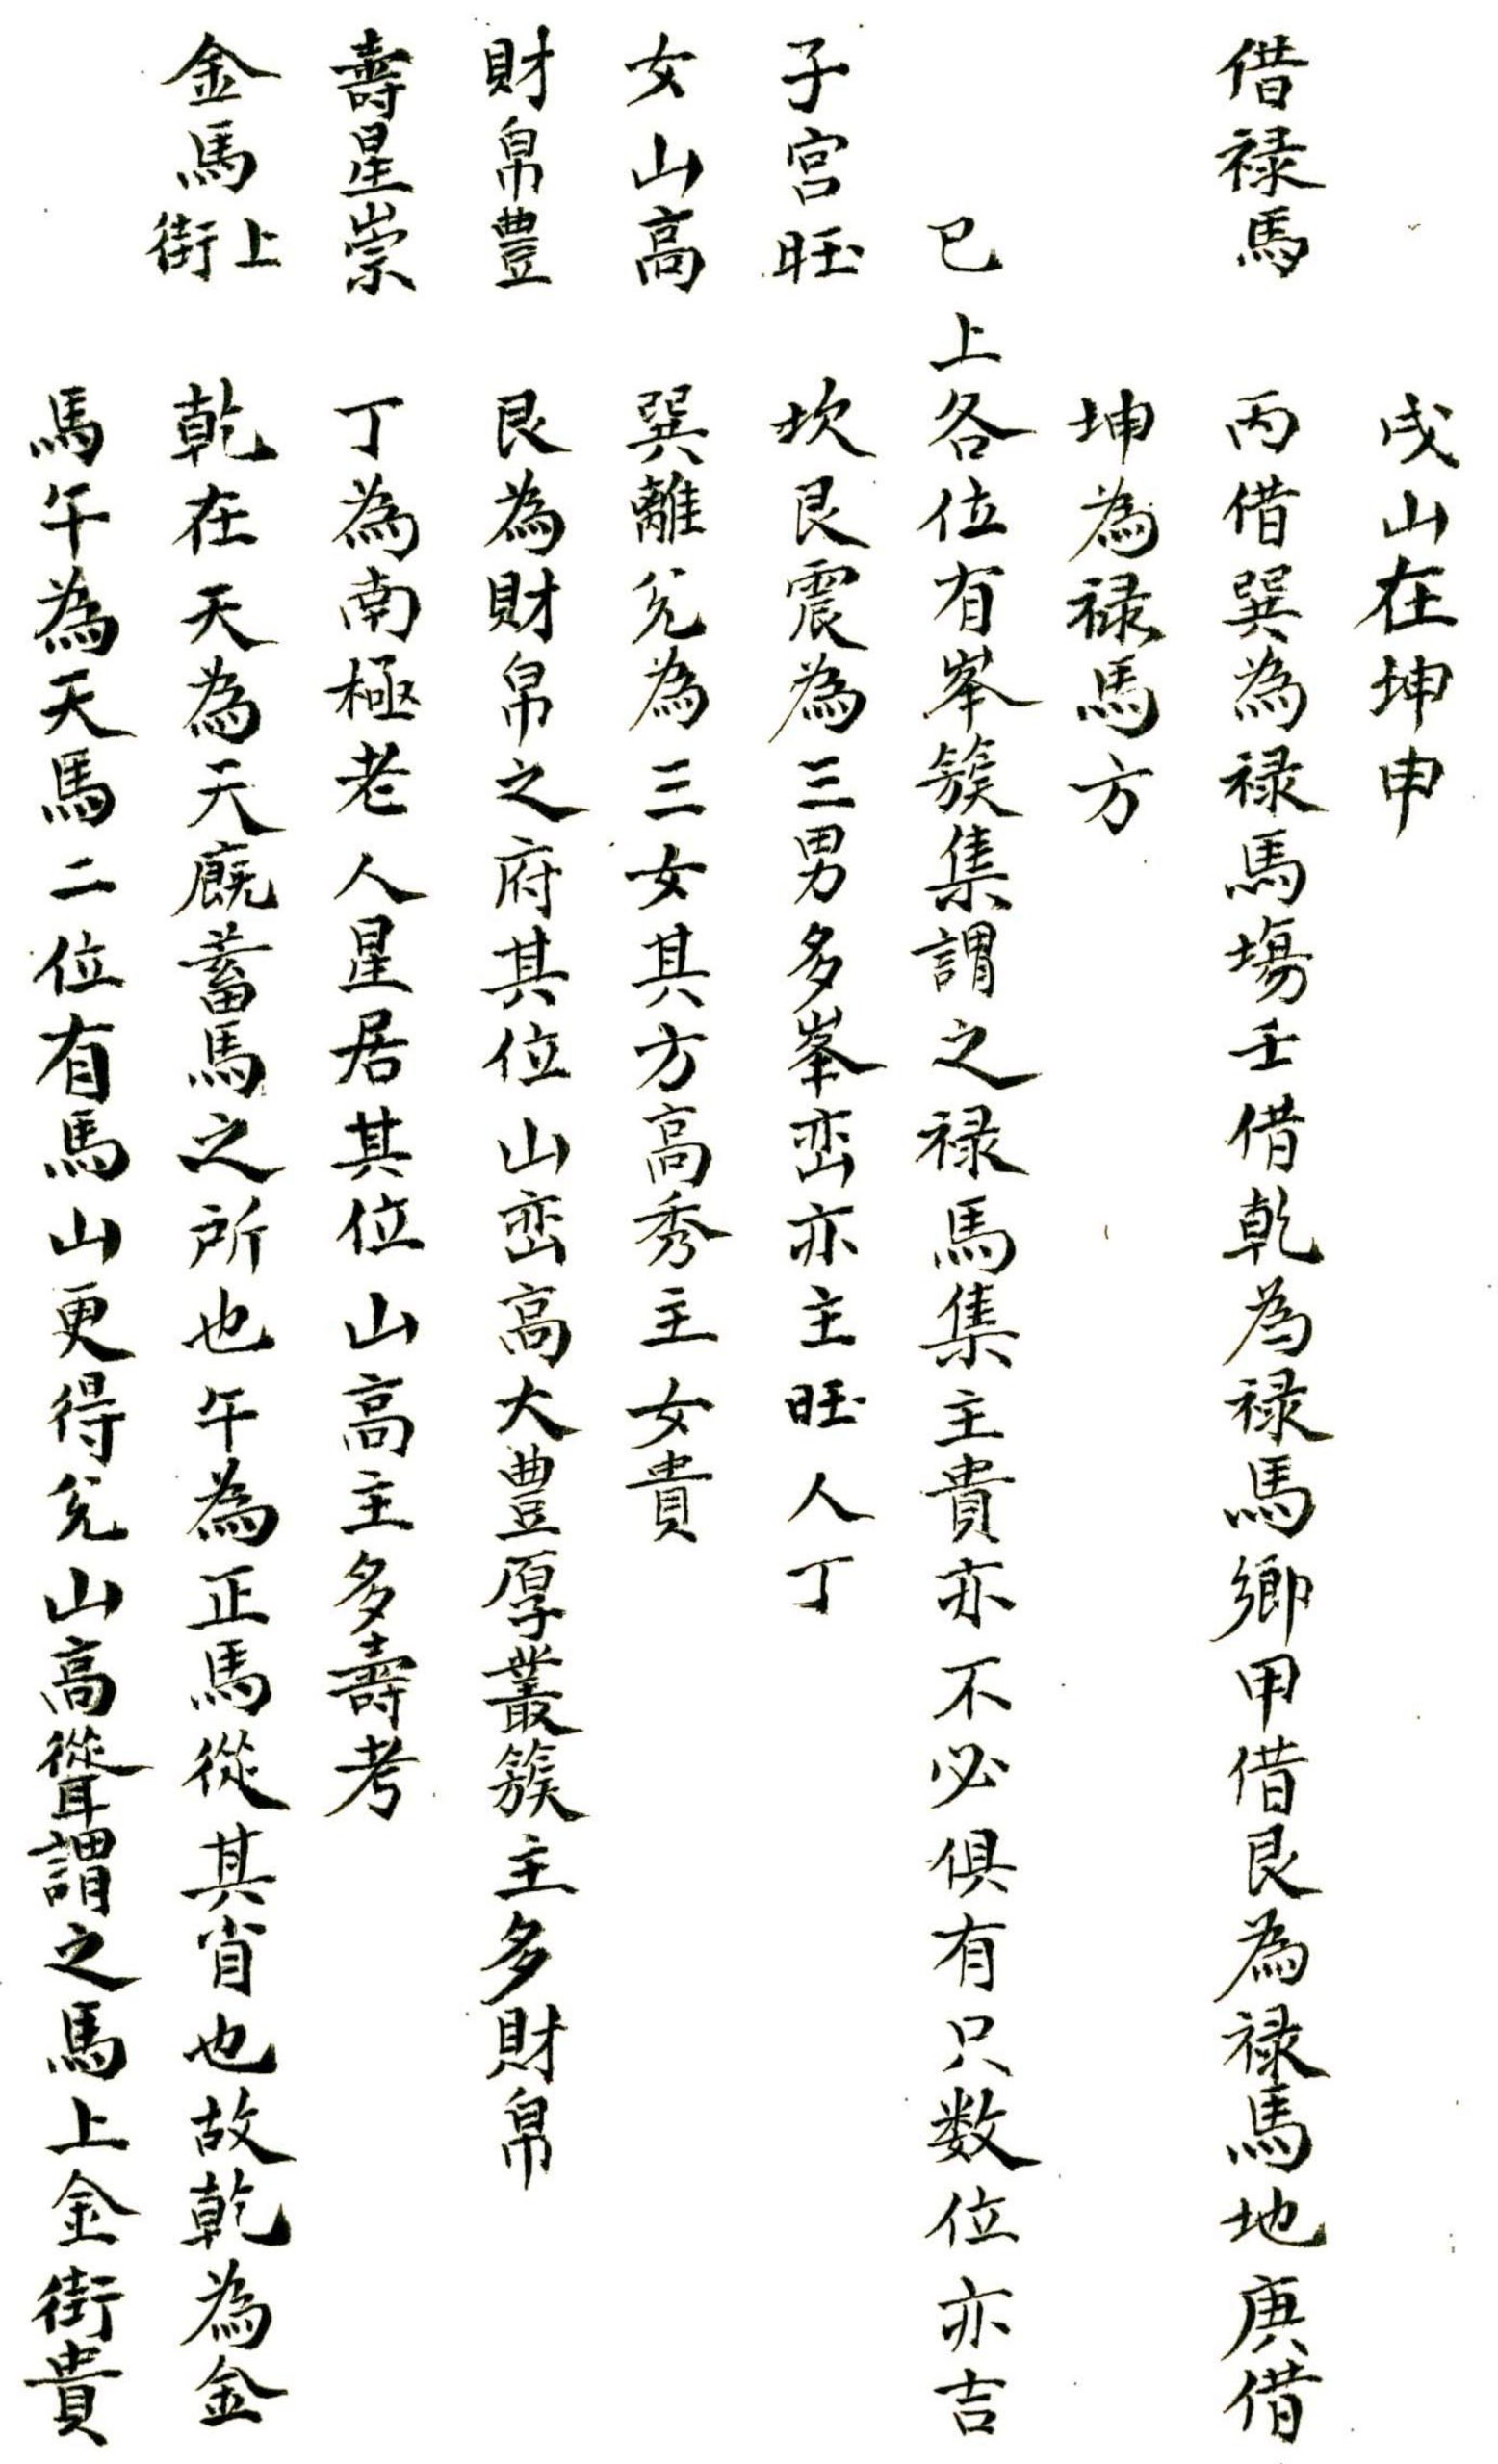 戌山在坤申
借禄馬　丙借巽為禄馬塲壬借乾為禄馬鄉甲借艮為禄馬地庚借
坤為禄馬方
已上各位有峯簇集謂之禄馬集主貴亦不必俱有只数位亦吉
子宮旺　坎艮震為三男多峯峦亦主旺人丁
女山高　巽離兌為三女其方高秀主女貴
財帛豊　艮為財帛之府其位山峦高大豊厚叢簇主多財帛
壽星崇　丁為南極老人星居其位山高主多壽考
金馬上街　乾在天為天廐蓄馬之所也午為正馬從其省也故乾為金
馬午為天馬二位有馬山更得兌山高聳謂之馬上金街貴